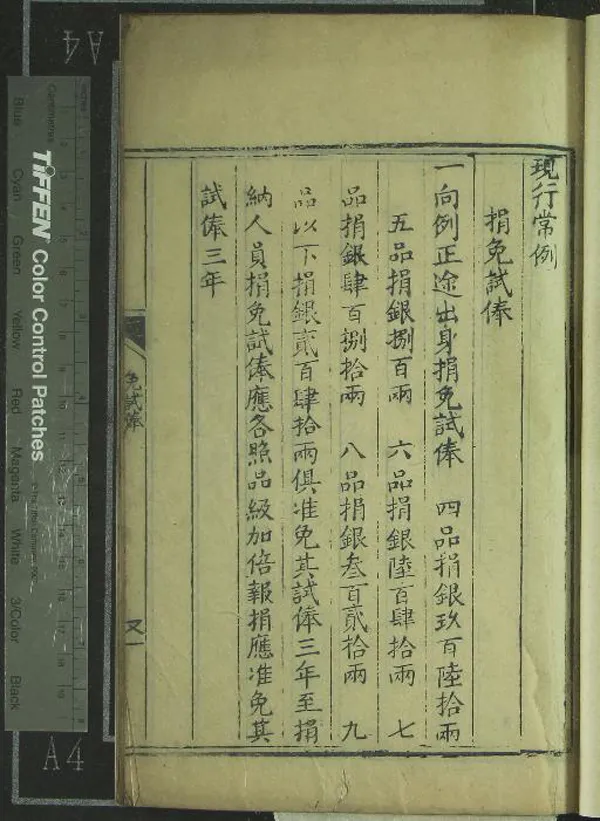 現行常例
捐免試俸
一向例正途出身捐免試俸 四品捐銀玖百陸拾兩
五品捐銀捌百兩 六品捐銀陸百肆拾兩 七
品捐銀肆百捌拾兩 八品捐銀叁百貳拾兩 九
品以下捐銀貳百肆拾兩俱准免其試俸三年至捐
納人員捐免試俸應各照品級加倍報捐應准免其
試俸三年
免試俸
又一
A4
TIFFEN Color Control Patches
Blue
Cyan
Green
Yellow
Red
Magenta
White
3/Color
Black
A4